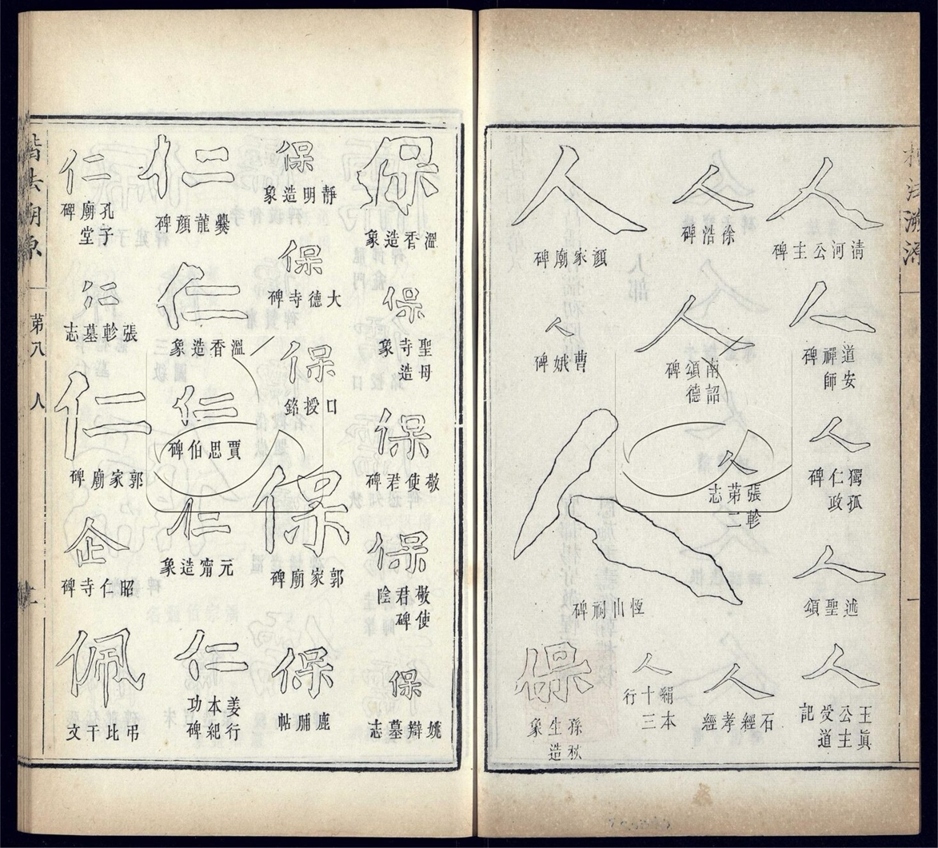 楷法溯源
人
清河公主碑
人
道安禪師碑
人
獨孤仁政碑
人
述聖頌
人
王眞公主受道記
人
徐浩碑
人
南詔頌德碑
人
張軫第二志
人
石經孝經
人
顏家廟碑
人
曹娥碑
人
恆山祠碑
人
本十三行
保
孫秋生造象
保
溫香造象
保
聖母寺造象
保
敬使君碑
保
敬使君碑陰
保
姚辯墓志
保
靜明造象
保
大德寺碑
保
口授銘
保
郭家廟碑
保
鹿脯帖
仁
爨龍顏碑
仁
溫香造象
仁
賈思伯碑
仁
元甯造象
仁
姜行本紀功碑
仁
孔子廟堂碑
仁
張軫墓志
仁
郭家廟碑
企
昭仁寺碑
佩
弔比干文
楷法溯源
第八 人